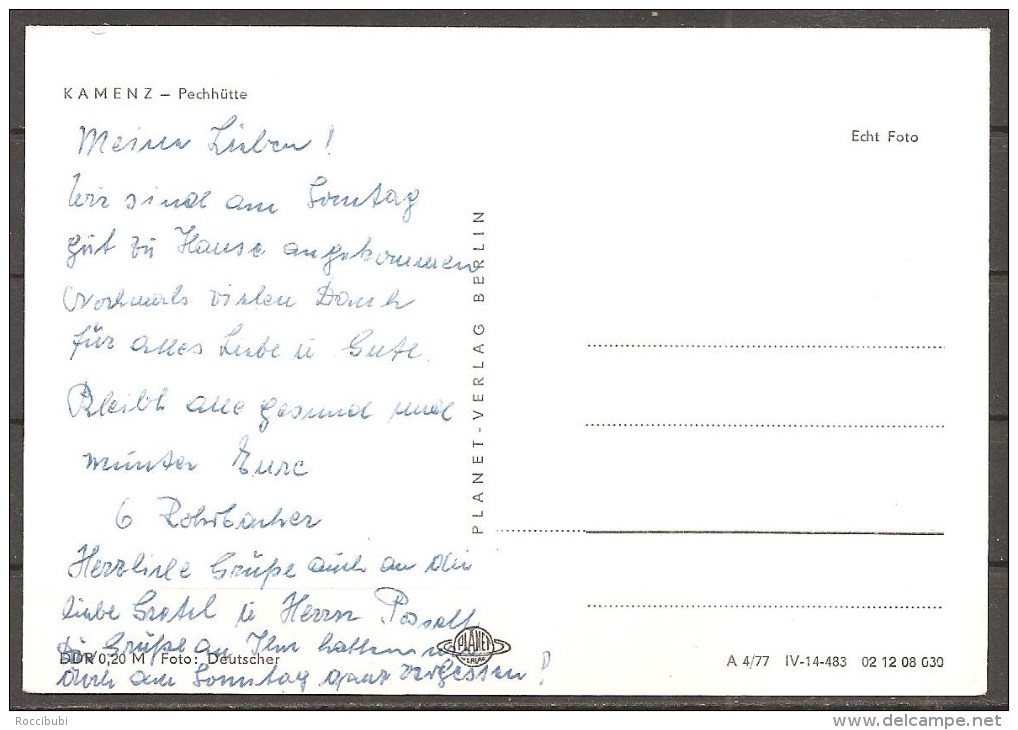 KAMENZ – Pechhütte
Echt Foto
Meine Lieben!
Wir sind am Sonntag
gut zu Hause angekommen
Nochmals vielen Dank
für alles Liebe u Gute.
Bleibt alle gesund und
munter Eure
6 Rohrbacher
Herzliche Grüße auch an die
liebe Gretel u Herrn Posselt
Die Grüße an Ihn hatten wir
doch am Sonntag ganz vergessen!
PLANET-VERLAG BERLIN
PLANET
VERLAG
DDR 0,20 M Foto: Deutscher
A 4/77 IV-14-483 02 12 08 030
Roccibubi
www.delcampe.net